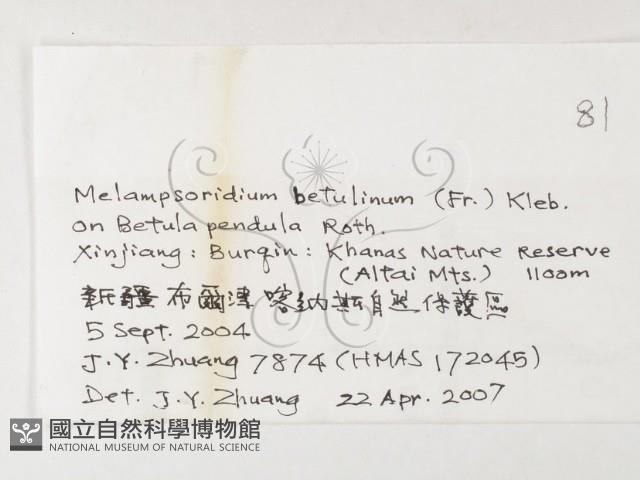 81
Melampsoridium betulinum (Fr.) Kleb.
on Betula pendula Roth.
Xinjiang: Burqin: Khanas Nature Reserve
(Altai Mts.) 1100m
新疆布爾津喀納斯自然保護區
5 Sept. 2004
J.Y. Zhuang 7874 (HMAS 172045)
Det. J.Y. Zhuang 22 Apr. 2007
國立自然科學博物館
NATIONAL MUSEUM OF NATURAL SCIENCE